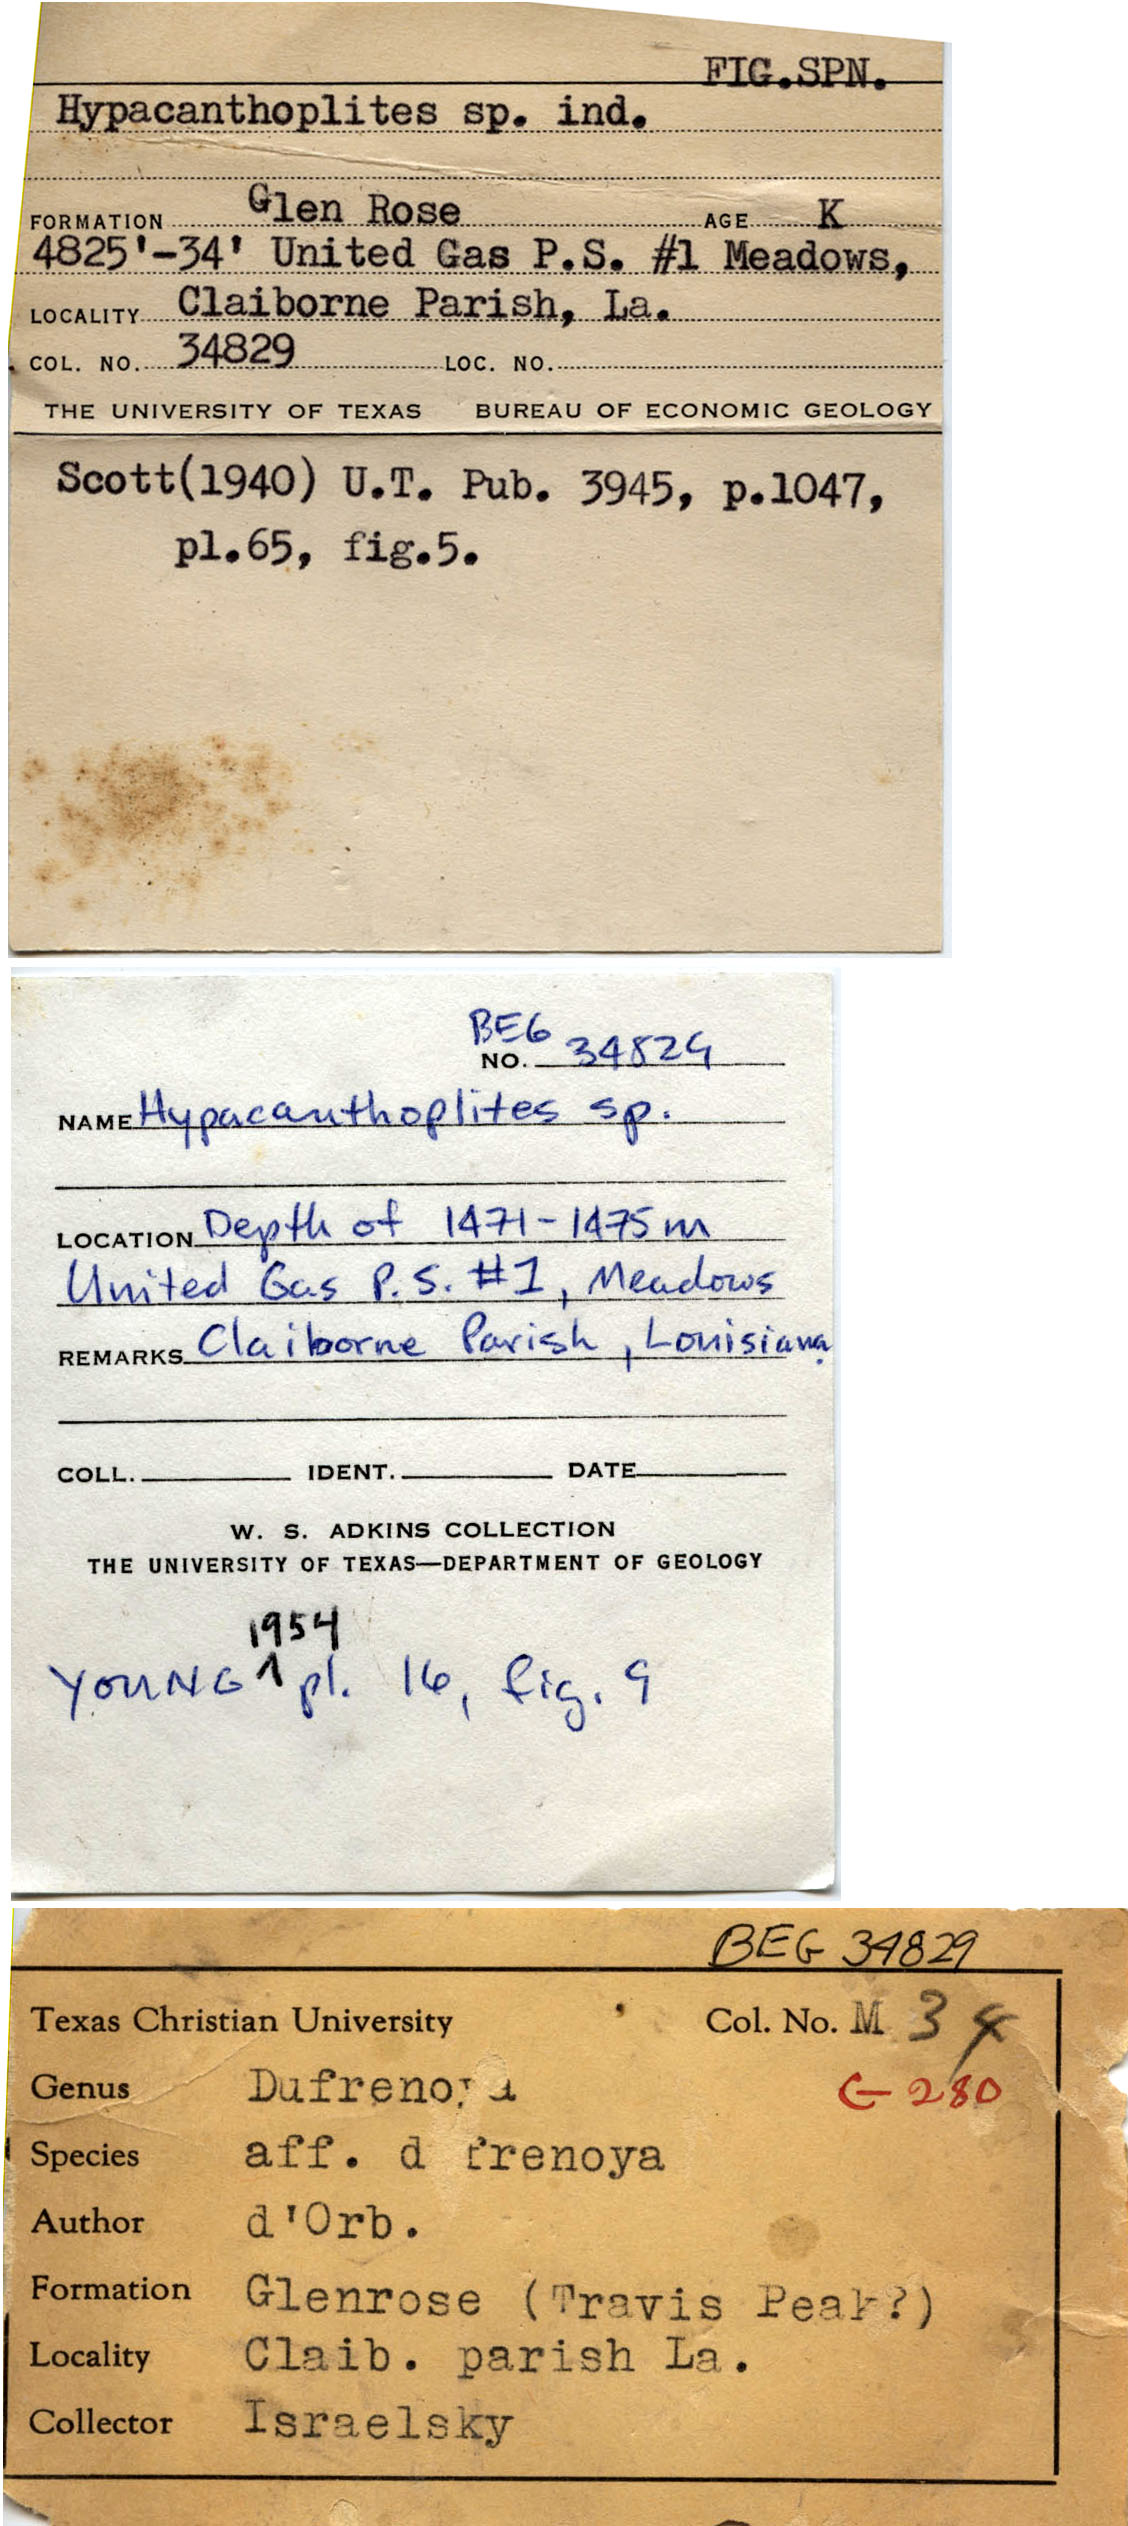 FIG.SPN.
Hypacanthoplites sp. ind.
FORMATION Glen Rose AGE K
4825'-34' United Gas P.S. #1 Meadows,
LOCALITY Claiborne Parish, La.
COL. NO. 34829 LOC. NO.
THE UNIVERSITY OF TEXAS BUREAU OF ECONOMIC GEOLOGY
Scott(1940) U.T. Pub. 3945, p.1047,
pl.65, fig.5.
BEG
NO. 34829
NAME Hypacanthoplites sp.
LOCATION Depth of 1471-1475m
United Gas P.S. #1, Meadows
REMARKS Claiborne Parish, Louisiana.
COLL. IDENT. DATE
W. S. ADKINS COLLECTION
THE UNIVERSITY OF TEXAS—DEPARTMENT OF GEOLOGY
1954
YOUNG ^ pl. 16, fig. 9
BEG 34829
Texas Christian University Col. No. M 34
Genus Dufrenoya G-280
Species aff. d frenoya
Author d'Orb.
Formation Glenrose (Travis Peak?)
Locality Claib. parish La.
Collector Israelsky